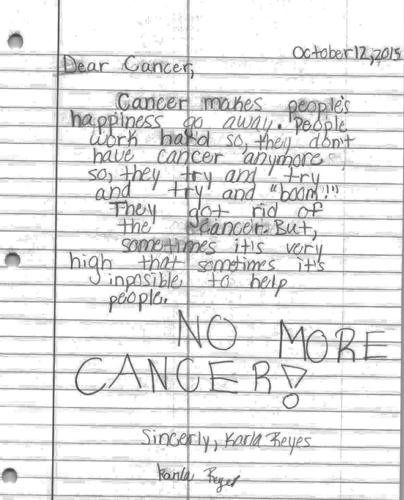 October 12, 2015
Dear Cancer,
Cancer makes people's
happiness go away. People
work hard so, they don't
have cancer anymore
so, they try and try
and try and "boom!"
They got rid of
the cancer. But,
sometimes it's very
high that sometimes it's
inposible to help
people.
NO MORE
CANCER!
Sincerly, Karla Reyes
Karla Reyes